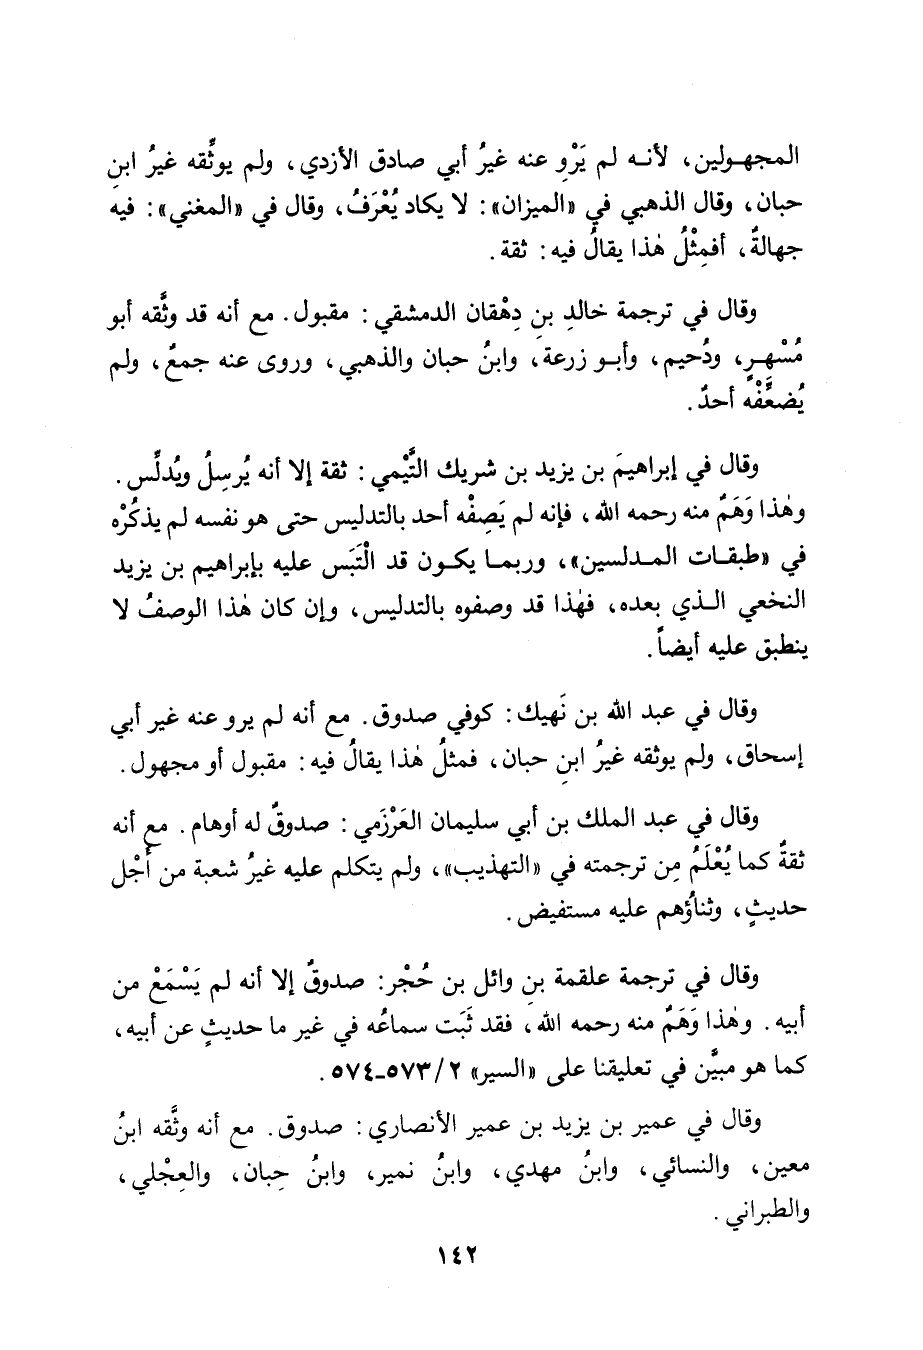 المجهولين، لأنه لم يَرْوِ عنه غيرُ أبي صادق الأزدي، ولم يوثِّقه غيرُ ابنِ
حبان، وقال الذهبي في «الميزان»: لا يكاد يُعْرَفُ، وقال في «المغني»: فيه
جهالةٌ، أفمِثْلُ هٰذا يقالُ فيه: ثقة.
وقال في ترجمة خالدِ بنِ دِهْقان الدمشقي: مقبول. مع أنه قد وثَّقه أبو
مُسْهِرٍ، ودُحيم، وأبو زرعة، وابنُ حبان والذهبي، وروى عنه جمعٌ، ولم
يُضعَّفْه أحدٌ.
وقال في إبراهيمَ بن يزيد بن شريك التَّيْمي: ثقة إلا أنه يُرسِلُ ويُدلِّس.
وهٰذا وَهَمٌ منه رحمه الله، فإنه لم يَصِفْه أحد بالتدليس حتى هو نفسه لم يذكُرْه
في «طبقات المدلسين»، وربما يكون قد الْتَبَس عليه بإبراهيم بن يزيد
النخعي الذي بعده، فهٰذا قد وصفوه بالتدليس، وإن كان هٰذا الوصفُ لا
ينطبق عليه أيضاً.
وقال في عبد الله بن نَهيك: كوفي صدوق. مع أنه لم يرو عنه غير أبي
إسحاق، ولم يوثقه غيرُ ابنِ حبان، فمثلُ هٰذا يقالُ فيه: مقبول أو مجهول.
وقال في عبد الملك بن أبي سليمان العَرْزَمي: صدوقٌ له أوهام. مع أنه
ثقةٌ كما يُعْلَمُ مِن ترجمته في «التهذيب»، ولم يتكلم عليه غيرُ شعبة من أَجْل
حديثٍ، وثناؤهم عليه مستفيض.
وقال في ترجمة علقمة بنِ وائل بن حُجْر: صدوقٌ إلا أنه لم يَسْمَعْ من
أبيه. وهٰذا وَهَمٌ منه رحمه الله، فقد ثَبَت سماعُه في غير ما حديثٍ عن أبيه،
كما هو مبيَّن في تعليقنا على «السير» ٢/٥٧٣-٥٧٤.
وقال في عمير بن يزيد بن عمير الأنصاري: صدوق. مع أنه وثَّقه ابنُ
معين، والنسائي، وابنُ مهدي، وابنُ نمير، وابنُ حِبان، والعِجْلي،
والطبراني.
١٤٢